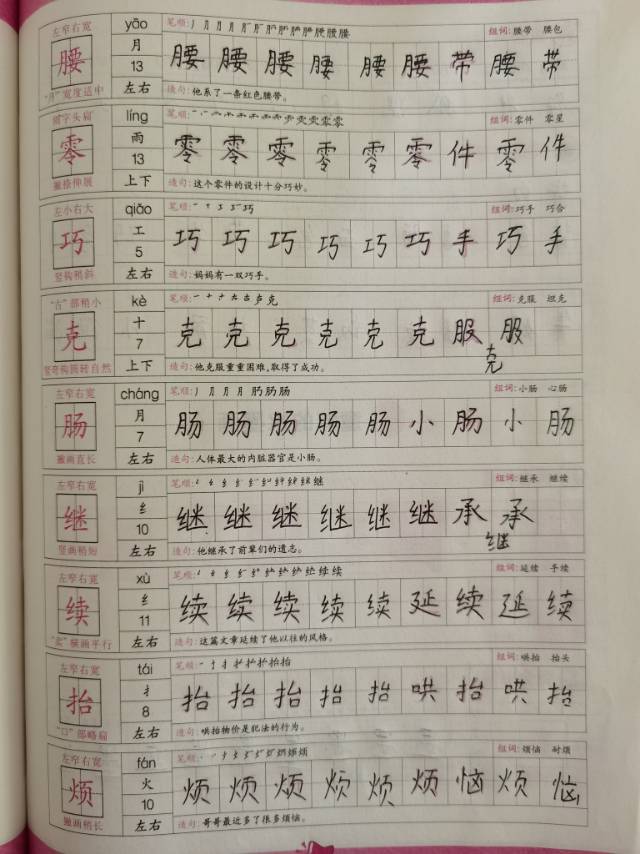 左窄右宽 yāo 笔顺: 组词:腰带 腰包
腰 月 腰 腰 腰 腰 腰 腰 带 腰 带
13
"月"宽度适中 左右 造句:他系了一条红色腰带。
líng 笔顺: 组词:零件 零星
零 雨 零 零 零 零 零 零 件 零 件
13
撇捺伸展 上下 造句:这个零件的设计十分巧妙。
左小右大 qiǎo 笔顺: 组词:巧手 巧合
巧 工 巧 巧 巧 巧 巧 巧 手 巧 手
5
竖钩稍斜 左右 造句:妈妈有一双巧手。
"古"部稍小 kè 笔顺: 组词:克服 坦克
克 十 克 克 克 克 克 克 服 服
7 克
竖弯钩圆转自然 上下 造句:他克服重重困难,取得了成功。
左窄右宽 cháng 笔顺: 组词:小肠 心肠
肠 月 肠 肠 肠 肠 肠 小 肠 小 肠
7
撇画直长 左右 造句:人体最大的内脏器官是小肠。
左窄右宽 jì 笔顺: 组词:继承 继续
继 纟 继 继 继 继 继 继 承 承
10 继
竖画稍短 左右 造句:他继承了前辈们的遗志。
左窄右宽 xù 笔顺: 组词:延续 手续
续 纟 续 续 续 续 续 延 续 延 续
11
"卖"横画平行 左右 造句:这篇文章延续了他以往的风格。
左窄右宽 tái 笔顺: 组词:哄抬 抬头
抬 扌 抬 抬 抬 抬 抬 哄 抬 哄 抬
8
"口"部略扁 左右 造句:哄抬物价是犯法的行为。
左窄右宽 fán 笔顺: 组词:烦恼 耐烦
烦 火 烦 烦 烦 烦 烦 烦 恼 烦 恼
10
撇画稍长 左右 造句:哥哥最近多了很多烦恼。